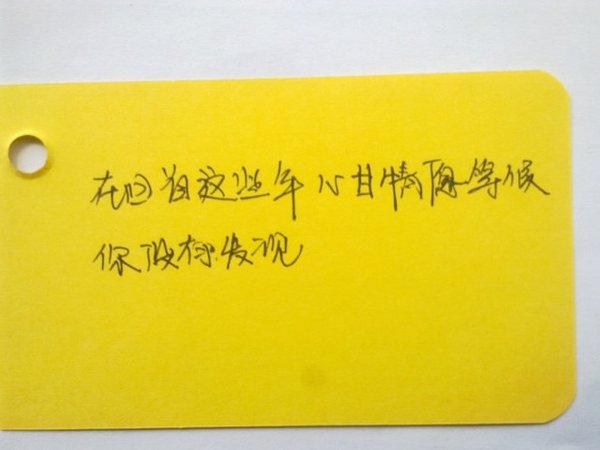 在回首这些年心甘情愿等候
你没有发现